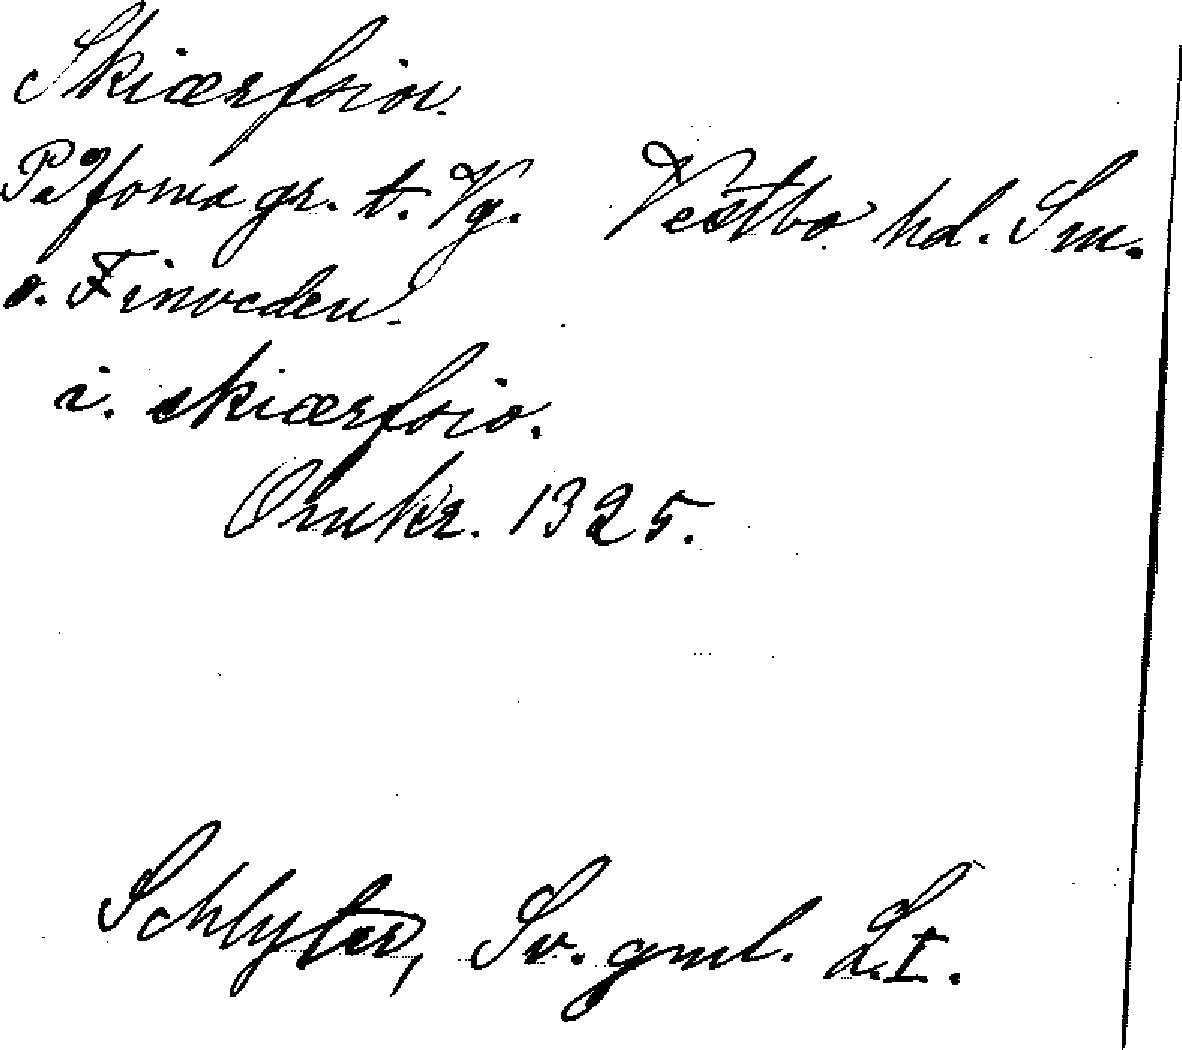 Skiærsior.
På forna gr. t. Vg. Vestbo hd. Sm.
o. Finveden.
i. skiærsio.
Omkr. 1325.
Schlyter, Sv. gml. L. I.